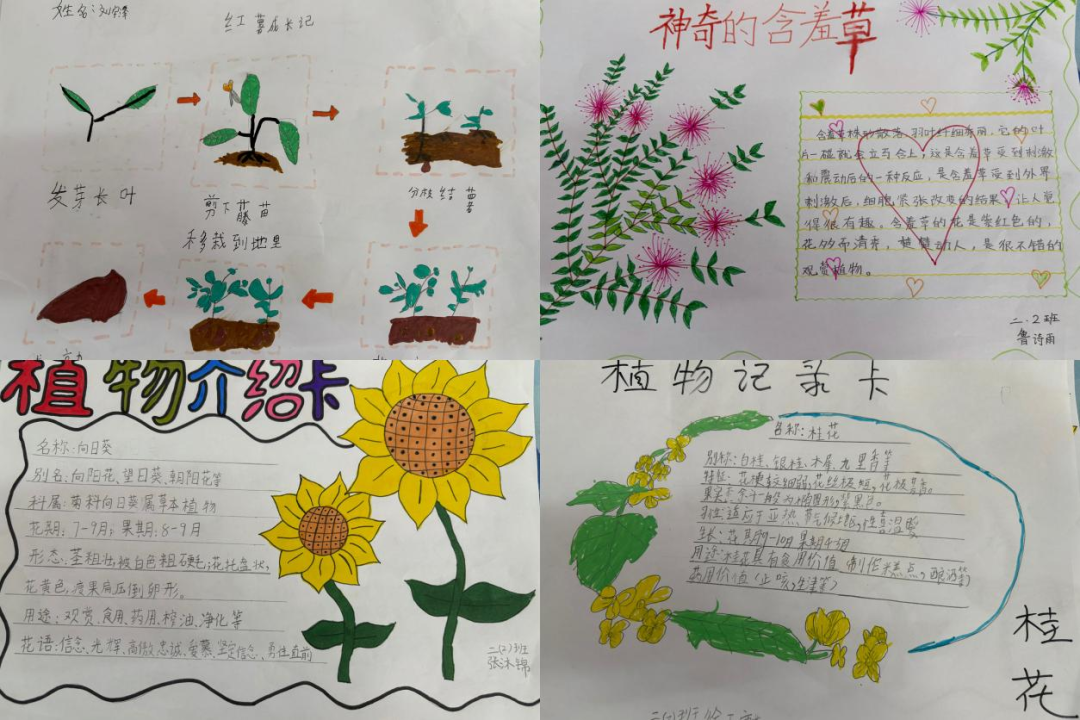 姓名：刘
红薯成长记
发芽长叶
剪下藤苗
移栽到地里
分枝结薯
神奇的含羞草
含羞草株形散落，羽叶纤细秀丽，它的叶
片一碰就会立马合上，这是含羞草受到刺激
和震动后的一种反应，是含羞草受到外界
刺激后，细胞紧张改变的结果，让人觉
得很有趣，含羞草的花是紫红色的，
花多而清秀，楚楚动人，是很不错的
观赏植物。
二.2班
鲁诗雨
植物介绍卡
名称：向日葵
别名：向阳花、望日葵、朝阳花等
科属：菊科向日葵属草本植物
花期：7-9月；果期：8-9月
形态：茎粗壮，被白色粗硬毛；花托盘状，
花黄色，瘦果扁压倒卵形。
用途：观赏、食用、药用、榨油、净化等
花语：信念、光辉、高傲、忠诚、爱慕、坚定信念、勇往直前
二(2)班
张沐锦
植物记录卡
名称：桂花
别称：白桂、银桂、木犀、九里香等
特征：花梗较细弱，花丝极短，花极香。
果
习性：适应于亚热带气候地，性喜温暖
花期9-10月 果期
用途：桂花具有食用价值，制作糕点，酿酒等
药用价值（止咳、生津等）
桂花